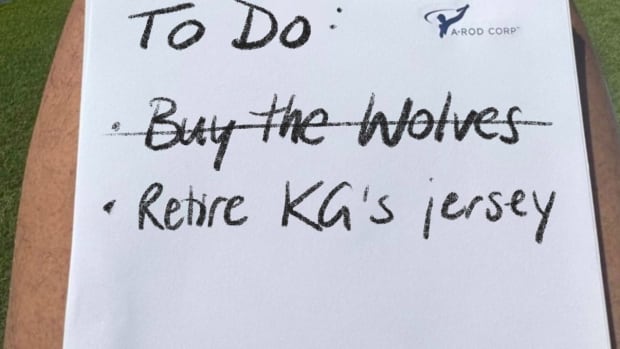 To Do:
A-ROD CORP™
• Buy the Wolves
• Retire KG's jersey